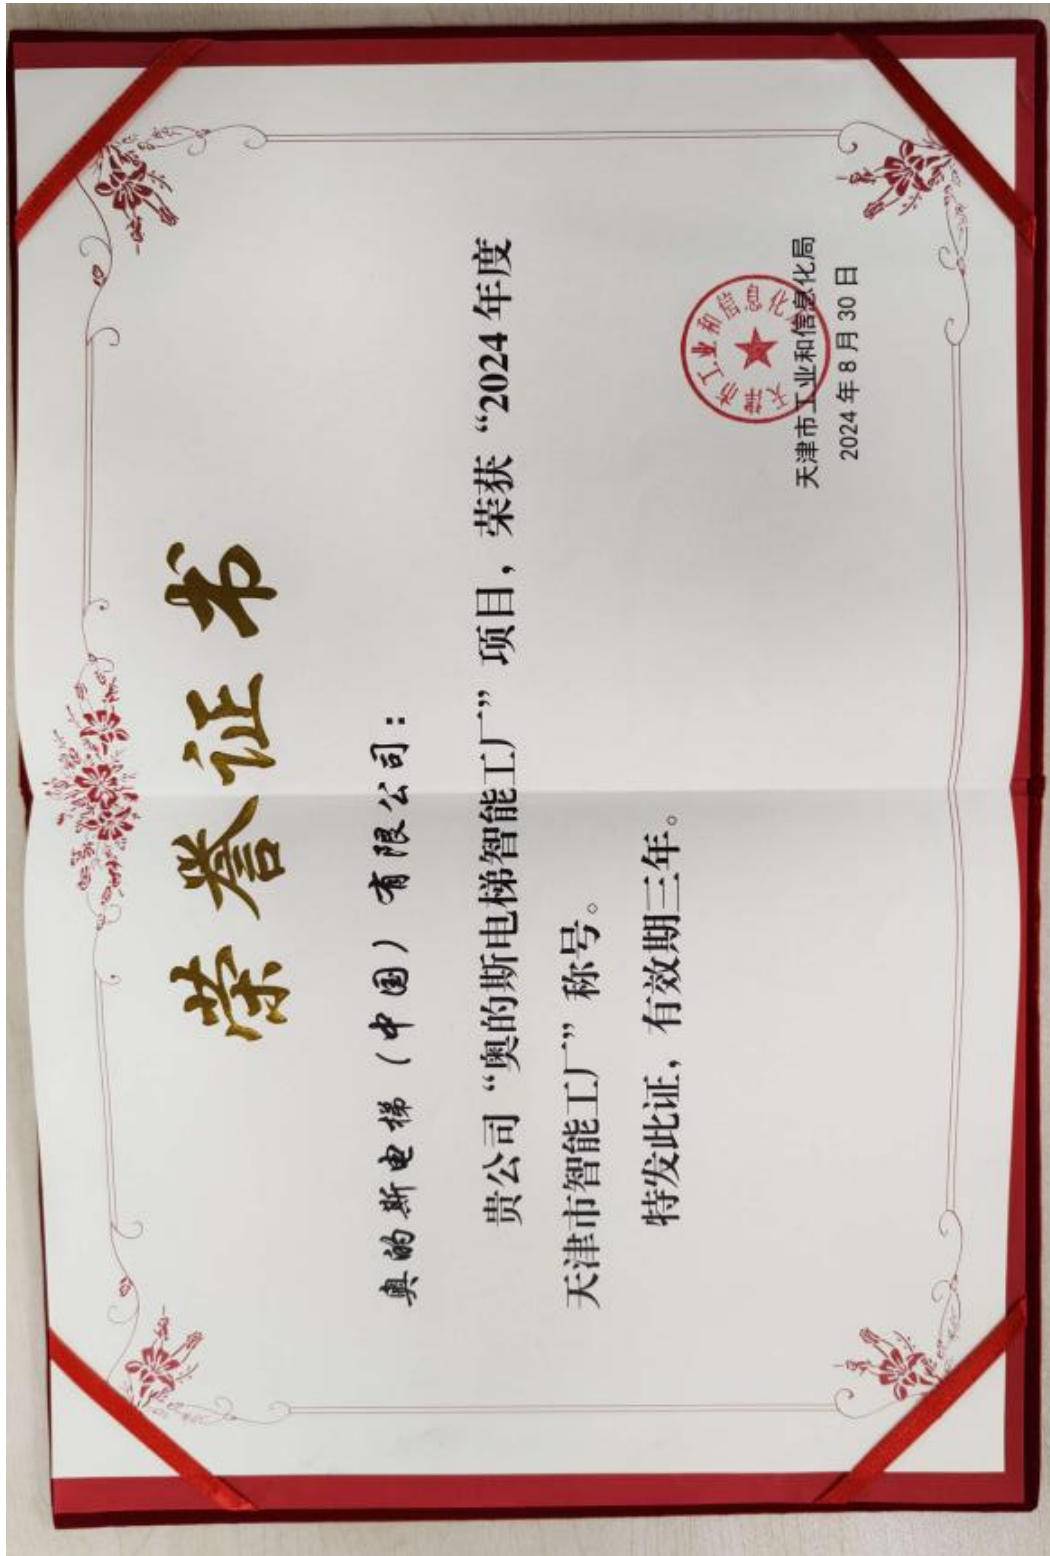 荣誉证书
奥的斯电梯（中国）有限公司：
贵公司“奥的斯电梯智能工厂”项目，荣获“2024年度
天津市智能工厂”称号。
特发此证，有效期三年。
天津市工业和信息化
天津市工业和信息化局
2024年8月30日